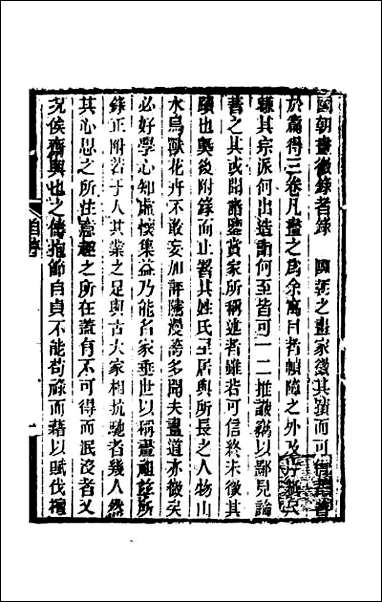 國朝畫徵錄者錄　國朝之畫家徵其蹟而可信
於篇得三卷凡畫之爲余寓目者幀障之外及片
縑其宗派何出造詣何至皆可一二推識竊以鄙見論
著之其或聞諸鑒賞家所稱述者雖若可信終未徵其
蹟也槩從附錄而止署其姓氏里居與所長之人物山
水鳥獸花卉不敢妄加評隲漫誇多聞夫畫道亦微矣
必好學心知虛懷集益乃能名家垂世以稱畫祖茲所
錄正附若干人其業之足與古大家相抗馳者幾人然
其心思之所注意趣之所在蓋有不可得而泯沒者又
況侯齋輿也之儔抱節自貞不能苟祿而藉以賦伐檀
自序
一